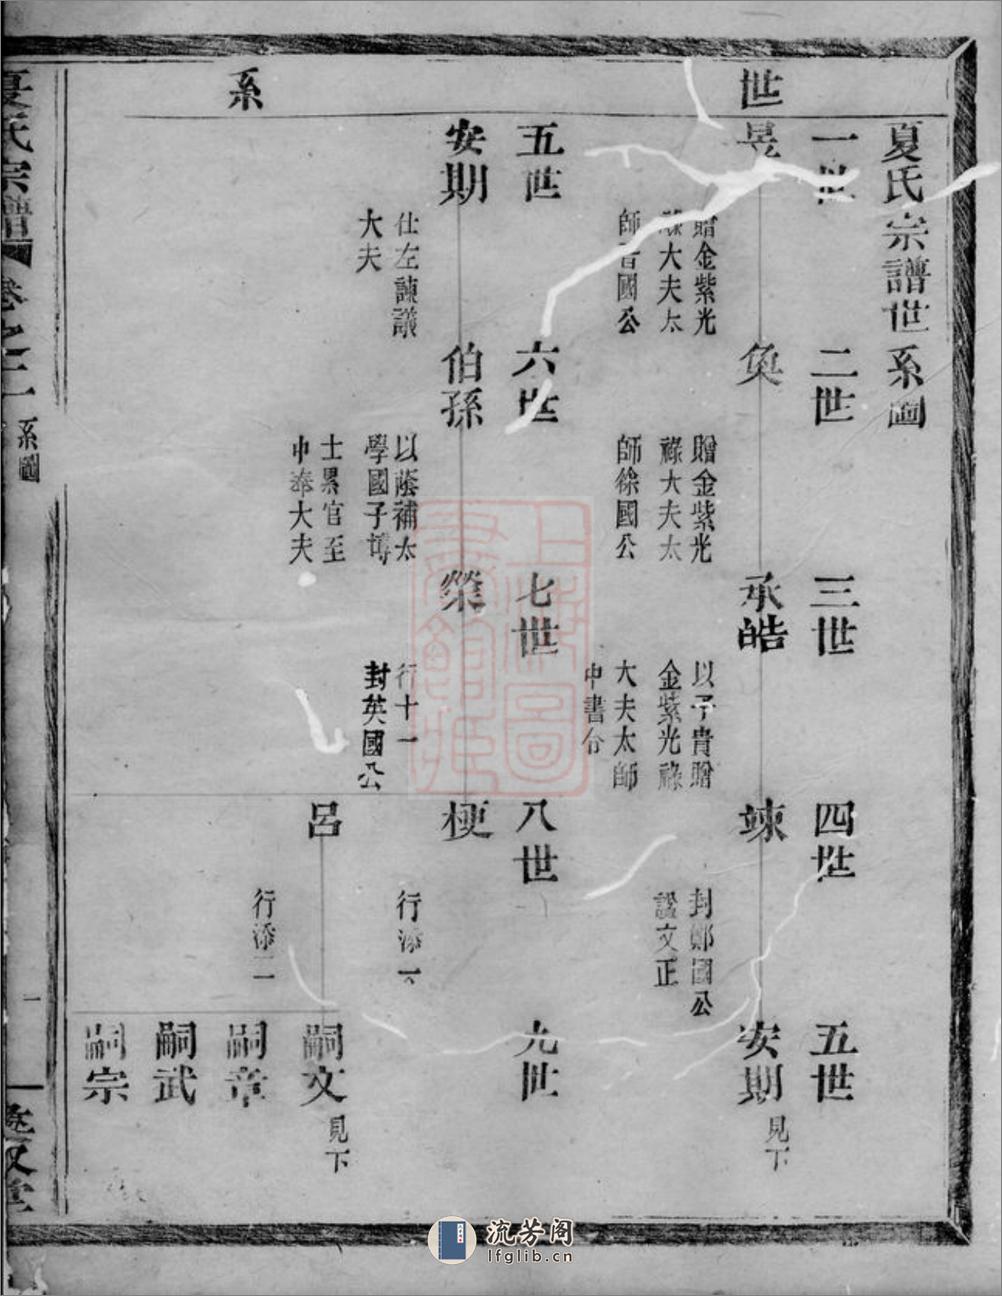 世系
夏氏宗譜世系圖
一世
昱
贈金紫光
祿大夫太
師晋國公
二世
奐
贈金紫光
祿大夫太
師徐國公
三世
承皓
以子貴贈
金紫光祿
大夫太師
中書令
四世
竦
封鄭國公
諡文正
五世
安期
見下
五世
安期
仕左諫議
大夫
六世
伯孫
以蔭補太
學國子博
士累官至
中奉大夫
七世
榮
行十一
封英國公
八世
梗
行添一
呂
行添二
九世
嗣文
見下
嗣章
嗣武
嗣宗
夏氏宗譜
卷之二
系圖
一
上海圖書館藏
流芳阁
lfglib.cn